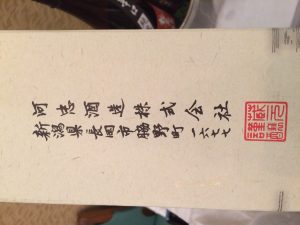 河忠酒造株式会社
新潟県長岡市脇野町一六七七